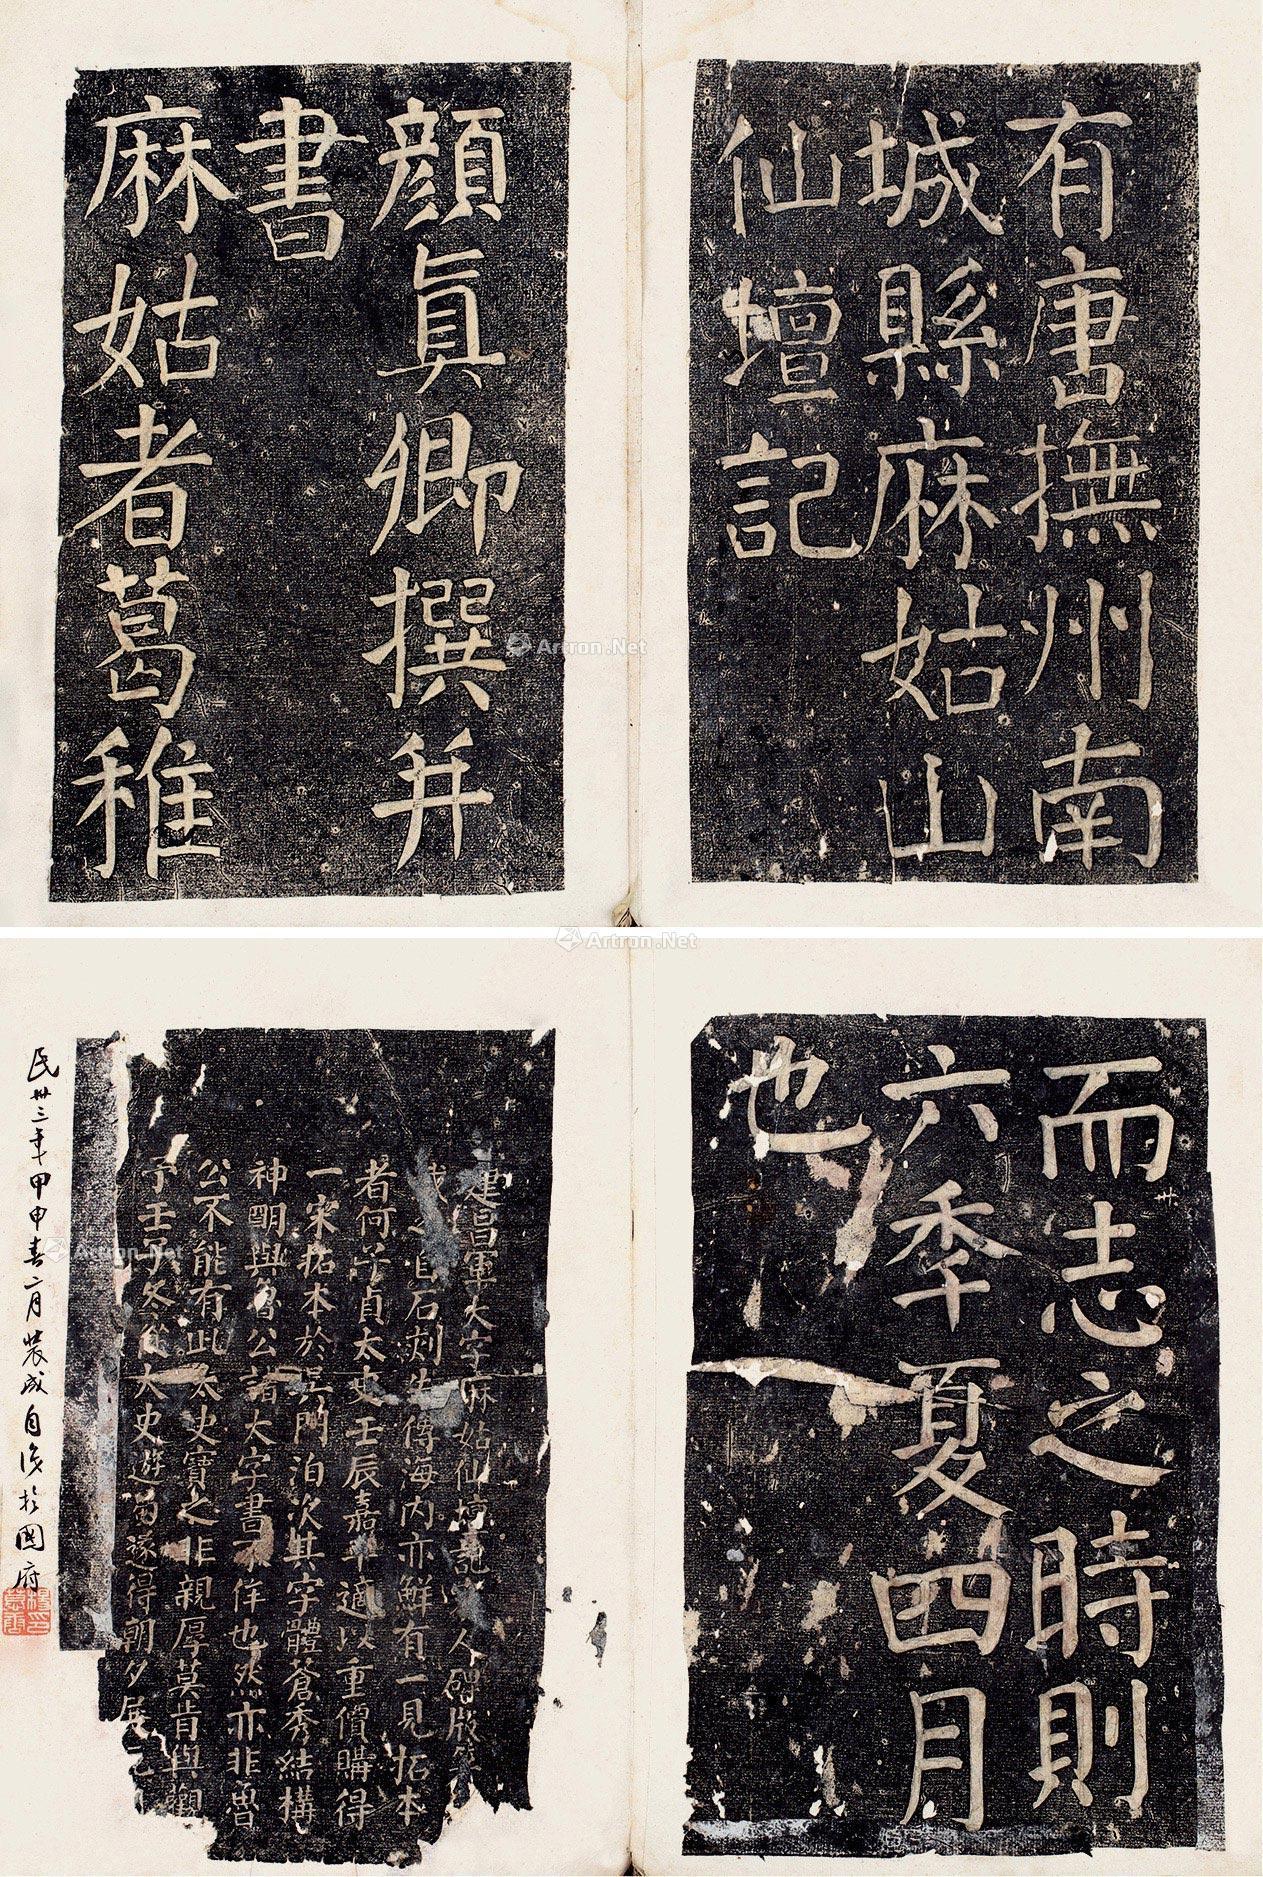 有唐撫州南
城縣麻姑山
仙壇記
顏真卿撰并
書
麻姑者葛稚
而志之時則
六秊夏四月
也
建昌軍大字麻姑仙壇記 人碑版
之 石刻 傳海内亦鮮有一見拓本
者何子貞太史壬辰嘉平適以重價購得
一宋拓本於吳門泊次其字體蒼秀結構
神明與魯公諸大字書不侔也然亦非魯
公不能有此太史寶之非親厚莫肯與觀
予壬子冬從太史遊蜀遂得朝夕展
民卅三年甲申春二月裝成自渝於國府
Artron.Net
Artron.Net
Artron.Net